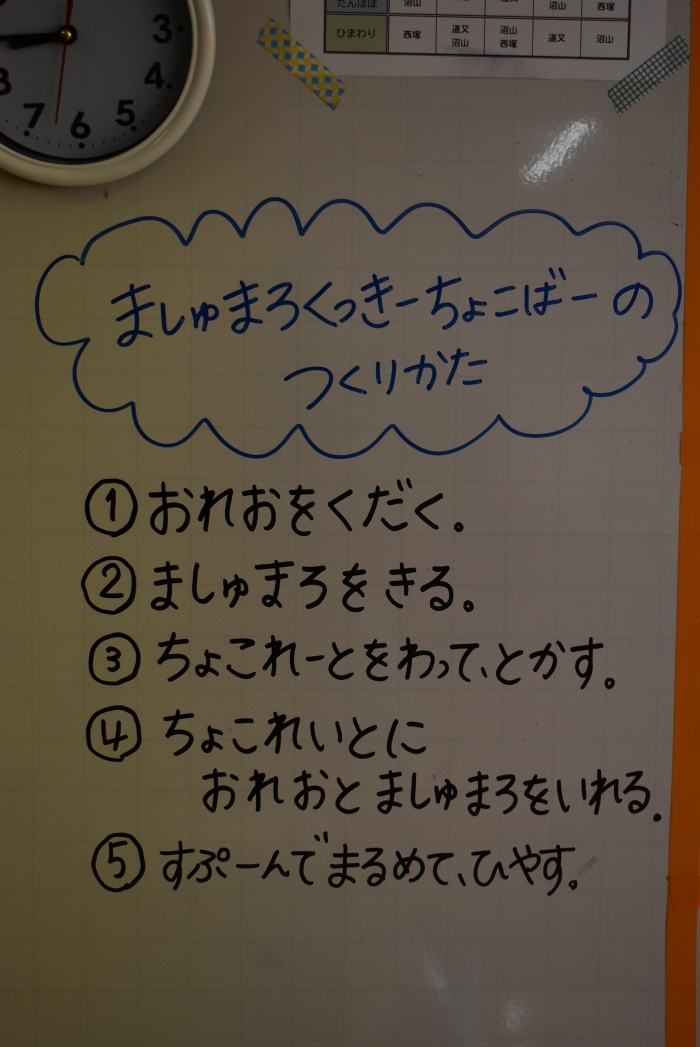 たんぽぽ 沼山 沼山 西塚
ひまわり 西塚 道又 沼山 沼山 西塚 道又 沼山
3
4
5
6
7
ましゅまろくっきーちょこばーの
つくりかた
① おれおをくだく。
② ましゅまろをきる。
③ ちょこれーとをわって、とかす。
④ ちょこれいとに
おれおとましゅまろをいれる。
⑤ すぷーんでまるめて、ひやす。